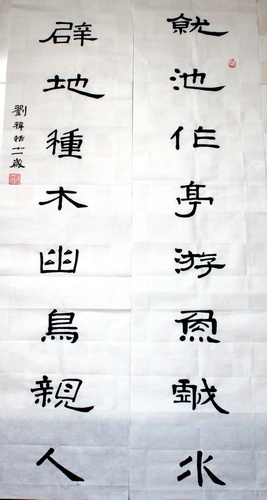 就池作亭游魚戲水
辟地種木幽鳥親人
劉恬十一歲